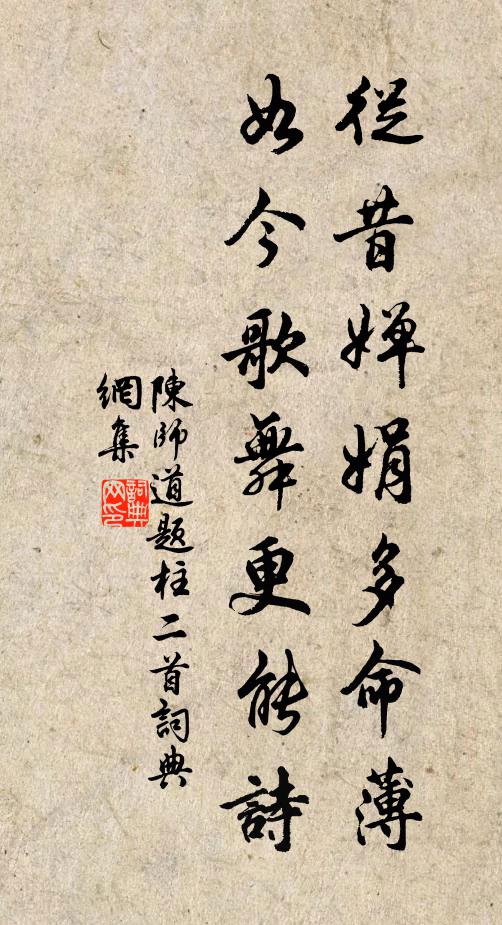 從昔嬋娟多命薄
如今歌舞更能詩
陳師道題柱二首詞典
網集
詞典
网印